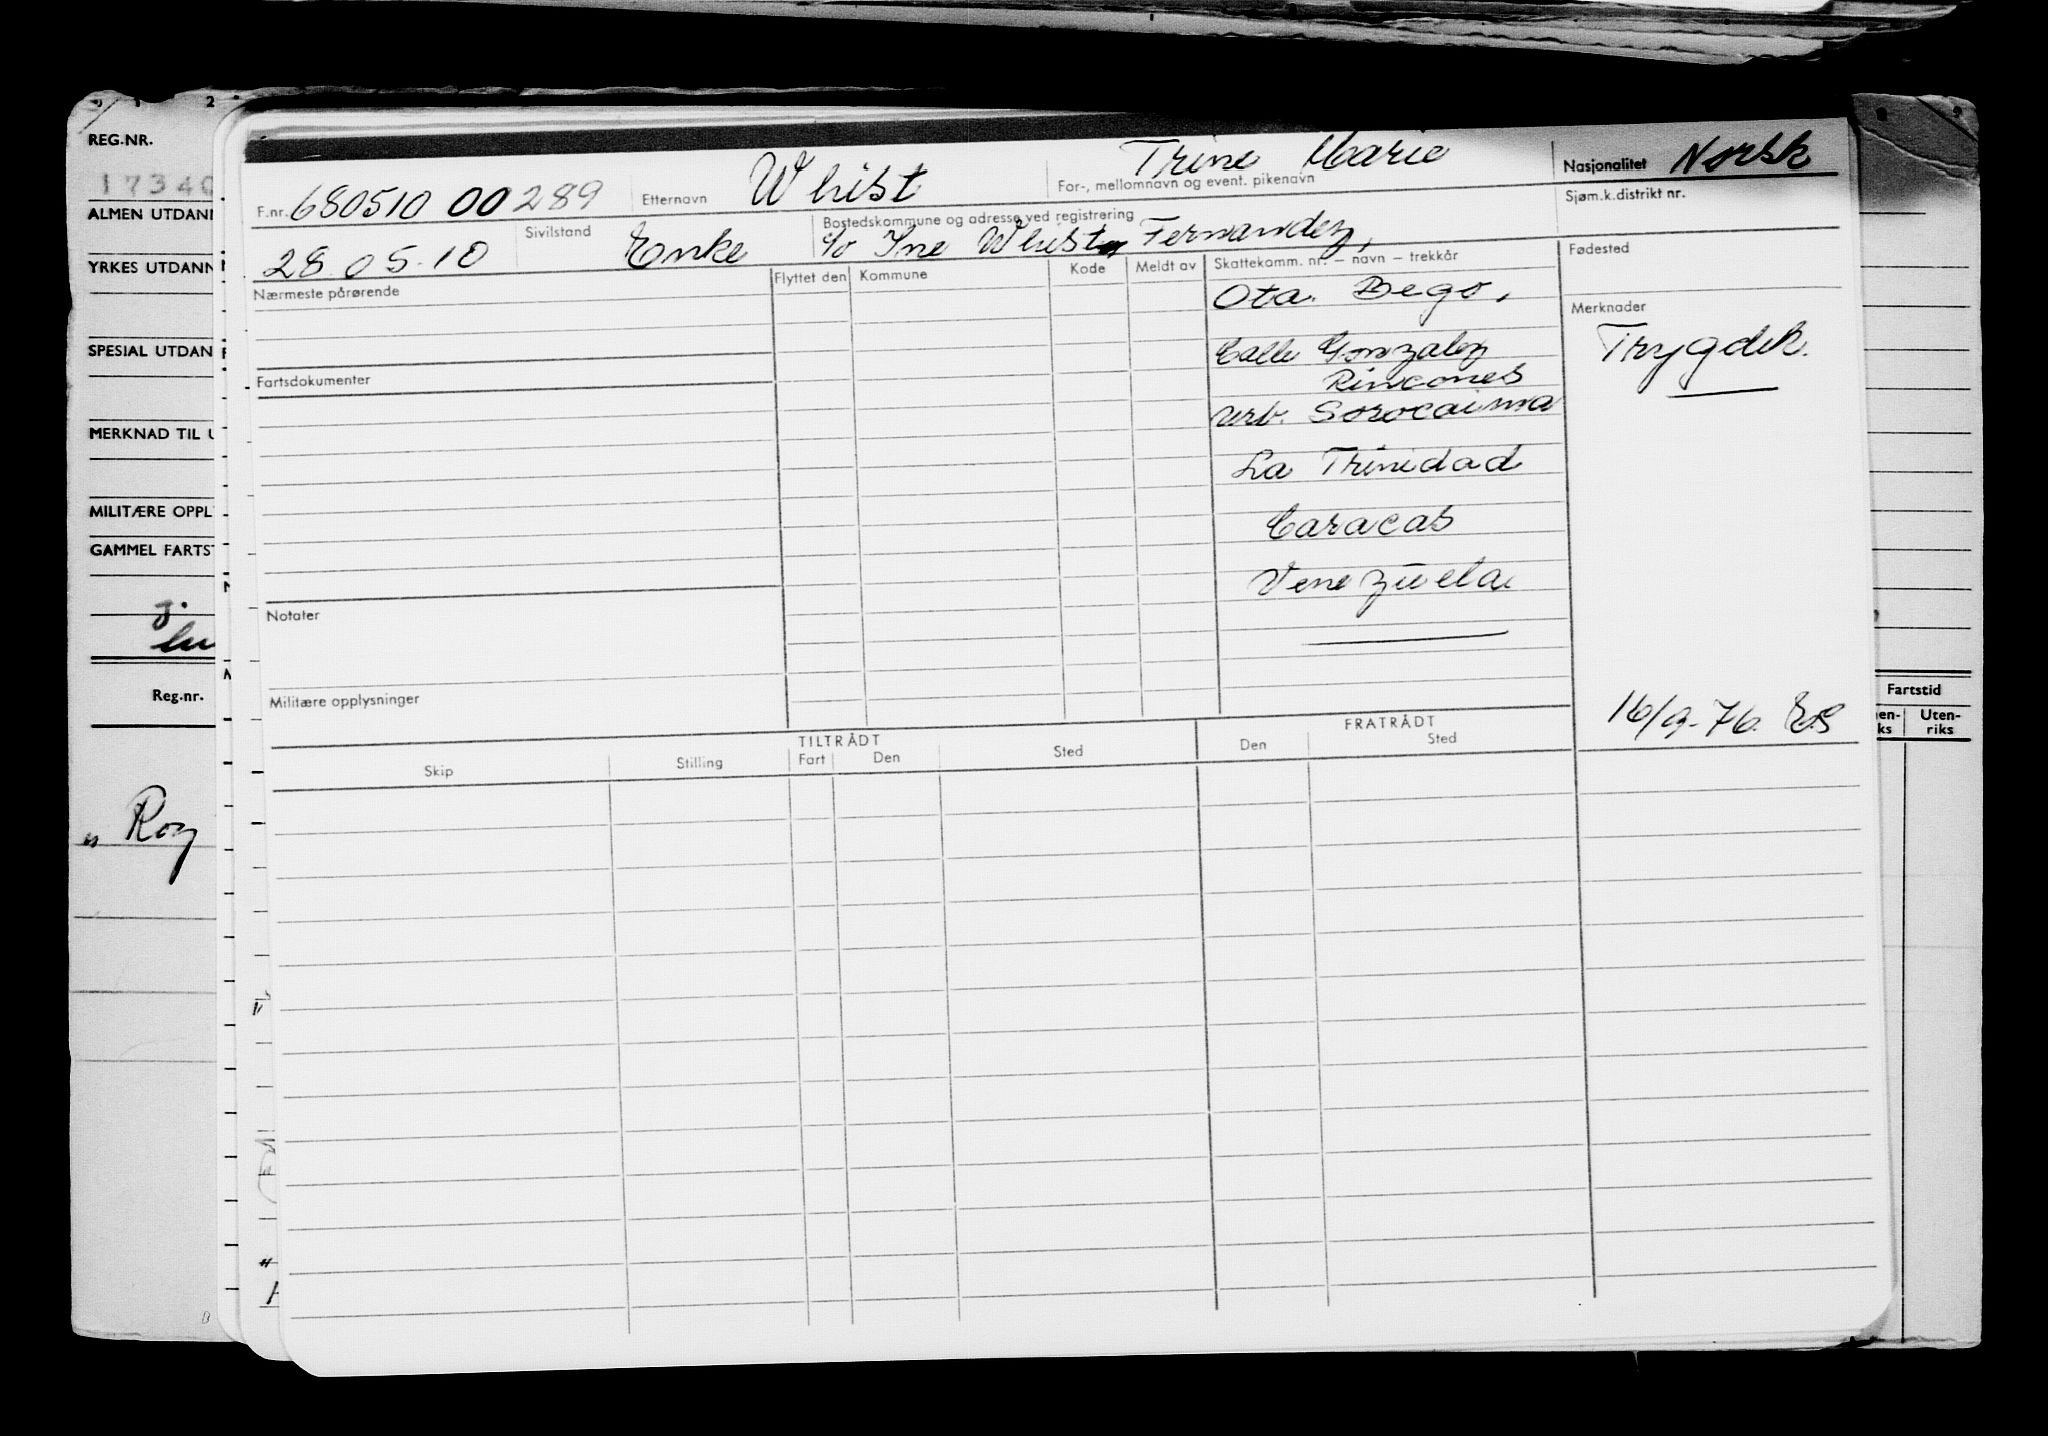 0 1 2
REG.NR.
17340
ALMEN UTDANN
YRKES UTDANN
SPESIAL UTDAN
MERKNAD TIL U
MILITÆRE OPPL
GAMMEL FARTST
Reg.nr.
" Roy
F.nr. 680510 00289 Etternavn Whist Trine Marie Nasjonalitet Norsk
For-, mellomnavn og event. pikenavn
Sjøm.k.distrikt nr.
28.05.10 Sivilstand Enke
Bostedskommune og adresse ved registrering
c/o Ine Whist Fernandez,
Fødested
Nærmeste pårørende
Flyttet den Kommune Kode Meldt av Skattekomm. nr. – navn – trekkår
Qta. Bego,
Merknader
Trygdek.
Calle Gonzalez
Rincones
Fartsdokumenter
Urb. Sorocaima
La Trinidad
Caracas
Venezuela
Notater
Militære opplysninger
16/9-76. ES
TILTRÅDT FRATRÅDT
Skip Stilling Fart Den Sted Den Sted
Fartstid
nen-
ks
Uten-
riks